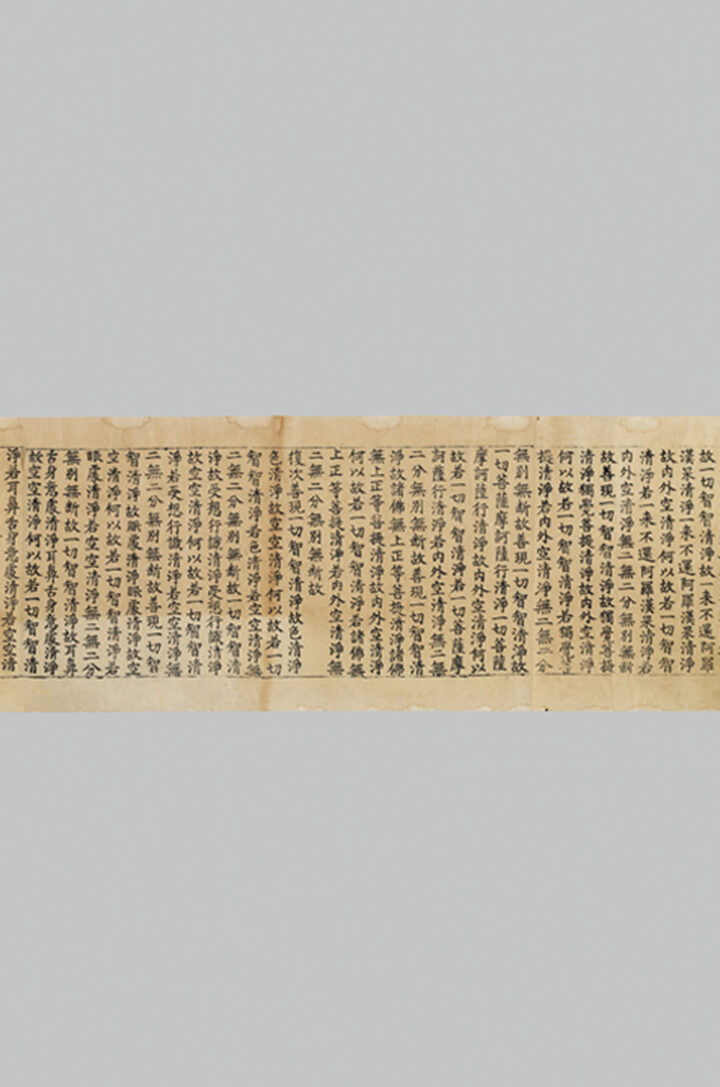 故一切智智清淨故一来不還阿羅
漢果清淨一来不還阿羅漢果清淨
故内外空清淨何以故若一切智智
清淨若一来不還阿羅漢果清淨若
内外空清淨無二無二分無別無断
故善現一切智智清淨故獨覺菩提
清淨獨覺菩提清淨故内外空清淨
何以故若一切智智清淨若獨覺菩
提清淨若内外空清淨無二無二分
無別無断故善現一切智智清淨故
一切菩薩摩訶薩行清淨一切菩薩
摩訶薩行清淨故内外空清淨何以
故若一切智智清淨若一切菩薩摩
訶薩行清淨若内外空清淨無二無
二分無別無断故善現一切智智清
淨故諸佛無上正等菩提清淨諸佛
無上正等菩提清淨故内外空清淨
何以故若一切智智清淨若諸佛無
上正等菩提清淨若内外空清淨無
二無二分無別無断故
復次善現一切智智清淨故色清淨
色清淨故空空清淨何以故若一切
智智清淨若色清淨若空空清淨無
二無二分無別無断故一切智智清
淨故受想行識清淨受想行識清淨
故空空清淨何以故若一切智智清
淨若受想行識清淨若空空清淨無
二無二分無別無断故善現一切智
智清淨故眼處清淨眼處清淨故空
空清淨何以故若一切智智清淨若
眼處清淨若空空清淨無二無二分
無別無断故一切智智清淨故耳鼻
舌身意處清淨耳鼻舌身意處清淨
故空空清淨何以故若一切智智清
淨若耳鼻舌身意處清淨若空空清